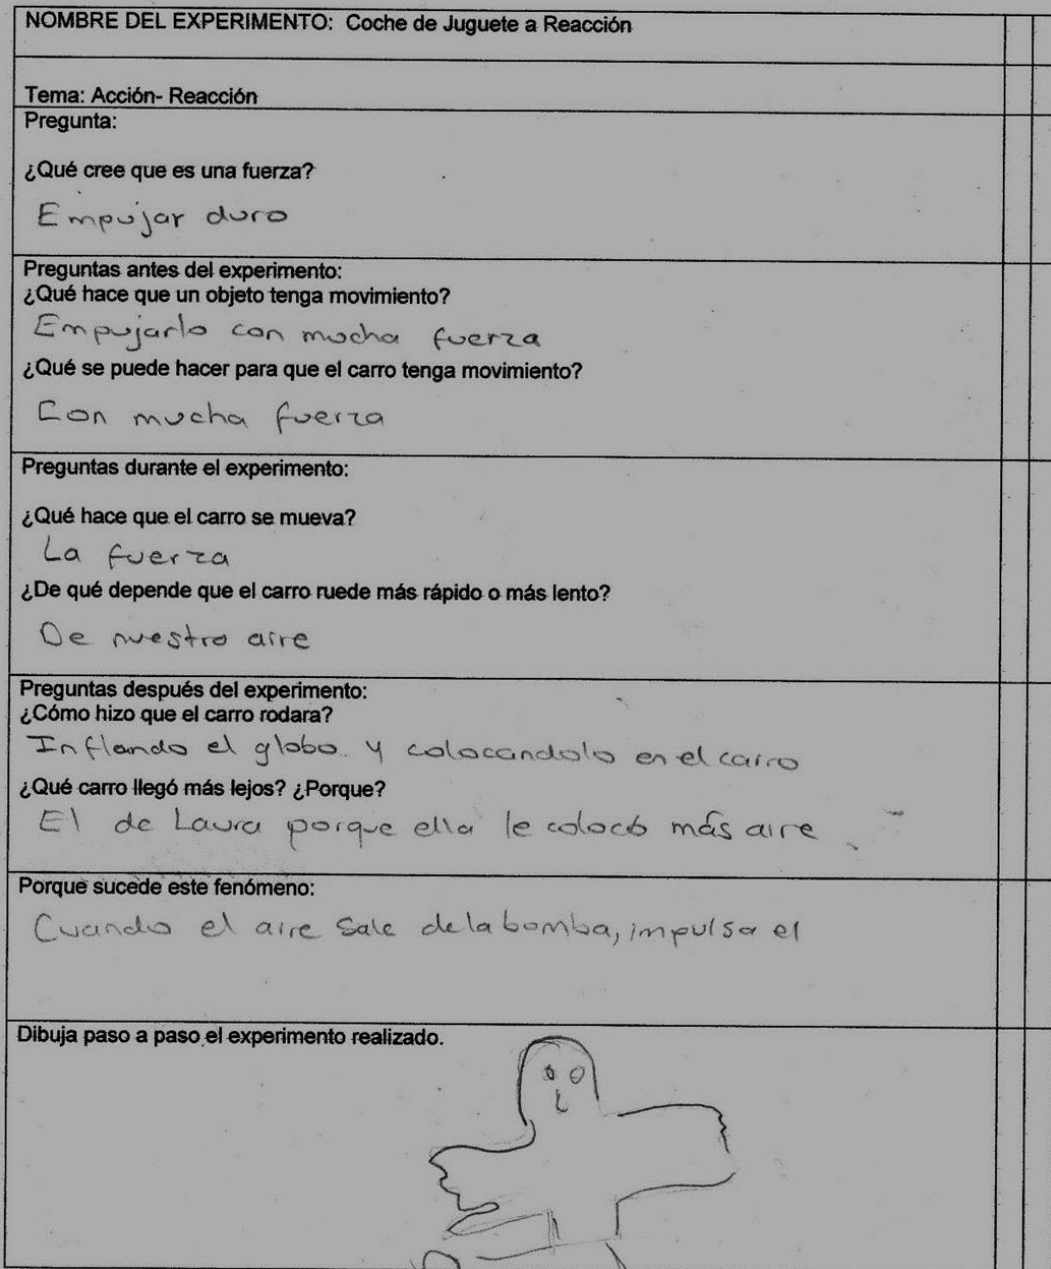 NOMBRE DEL EXPERIMENTO: Coche de Juguete a Reacción
Tema: Acción- Reacción
Pregunta:
¿Qué cree que es una fuerza?
Empujar duro
Preguntas antes del experimento:
¿Qué hace que un objeto tenga movimiento?
Empujarlo con mucha fuerza
¿Qué se puede hacer para que el carro tenga movimiento?
Con mucha fuerza
Preguntas durante el experimento:
¿Qué hace que el carro se mueva?
La fuerza
¿De qué depende que el carro ruede más rápido o más lento?
De nuestro aire
Preguntas después del experimento:
¿Cómo hizo que el carro rodara?
Inflando el globo y colocandolo en el carro
¿Qué carro llegó más lejos? ¿Porque?
El de Laura porque ella le colocó más aire
Porque sucede este fenómeno:
Cuando el aire sale de la bomba, impulsa el
Dibuja paso a paso el experimento realizado.